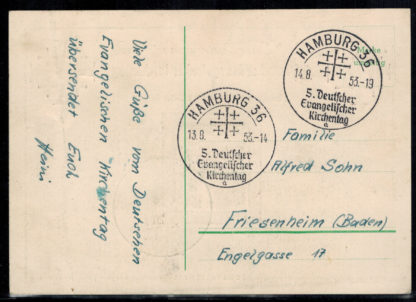 Viele Grüße vom Deutschen
Evangelischen Kirchentag
übersendet Euch
Heini
HAMBURG 36
13.8. 53.-14
5. Deutscher
Evangelischer
Kirchentag
a
HAMBURG 36
14.8. 53.-19
5. Deutscher
Evangelischer
Kirchentag
a
Familie
Alfred Sohn
Friesenheim (Baden)
Engelgasse 17